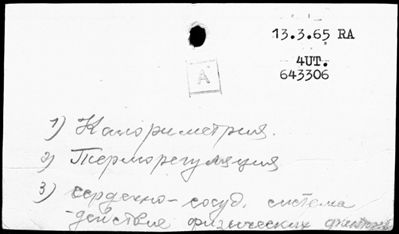 13.3.65 RA
4UT.
643306
A
1) Калориметрия.
2) Терморегуляция
3) сердечно-сосуд. система
-действие физических